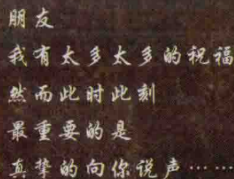 朋友
我有太多太多的祝福
然而此时此刻
最重要的是
真挚的向你说声……